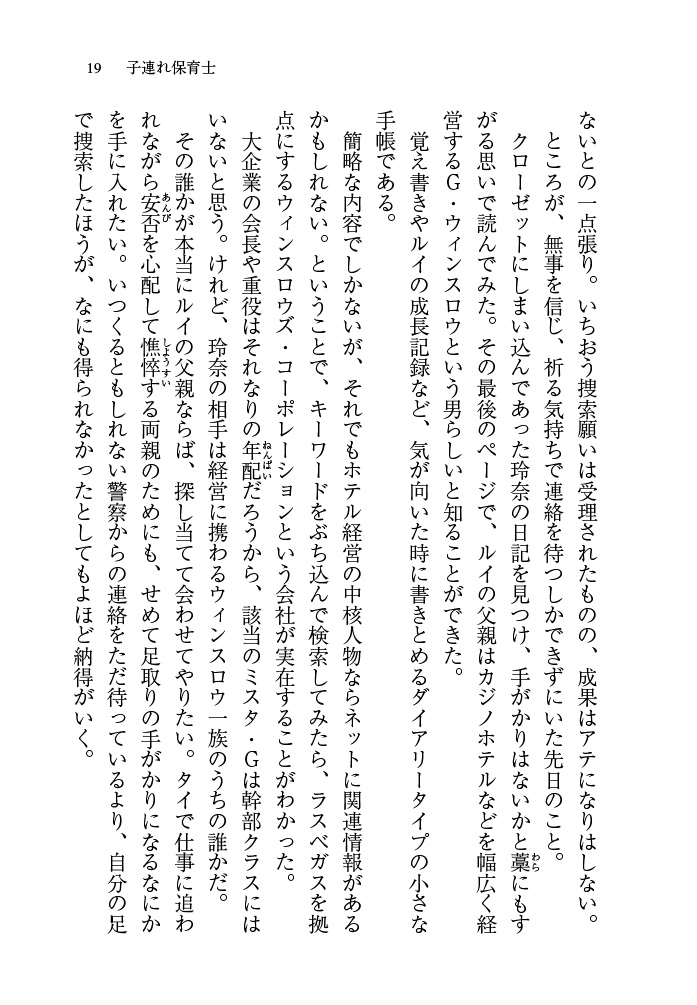 19　子連れ保育士
ないとの一点張り。いちおう捜索願いは受理されたものの、成果はアテになりはしない。
ところが、無事を信じ、祈る気持ちで連絡を待つしかできずにいた先日のこと。
クローゼットにしまい込んであった玲奈の日記を見つけ、手がかりはないかと藁にもす
がる思いで読んでみた。その最後のページで、ルイの父親はカジノホテルなどを幅広く経
営するG・ウィンスロウという男らしいと知ることができた。
覚え書きやルイの成長記録など、気が向いた時に書きとめるダイアリータイプの小さな
手帳である。
簡略な内容でしかないが、それでもホテル経営の中核人物ならネットに関連情報がある
かもしれない。ということで、キーワードをぶち込んで検索してみたら、ラスベガスを拠
点にするウィンスロウズ・コーポレーションという会社が実在することがわかった。
大企業の会長や重役はそれなりの年配だろうから、該当のミスタ・Gは幹部クラスには
いないと思う。けれど、玲奈の相手は経営に携わるウィンスロウ一族のうちの誰かだ。
その誰かが本当にルイの父親ならば、探し当てて会わせてやりたい。タイで仕事に追わ
れながら安否を心配して憔悴する両親のためにも、せめて足取りの手がかりになるなにか
を手に入れたい。いつくるともしれない警察からの連絡をただ待っているより、自分の足
で捜索したほうが、なにも得られなかったとしてもよほど納得がいく。